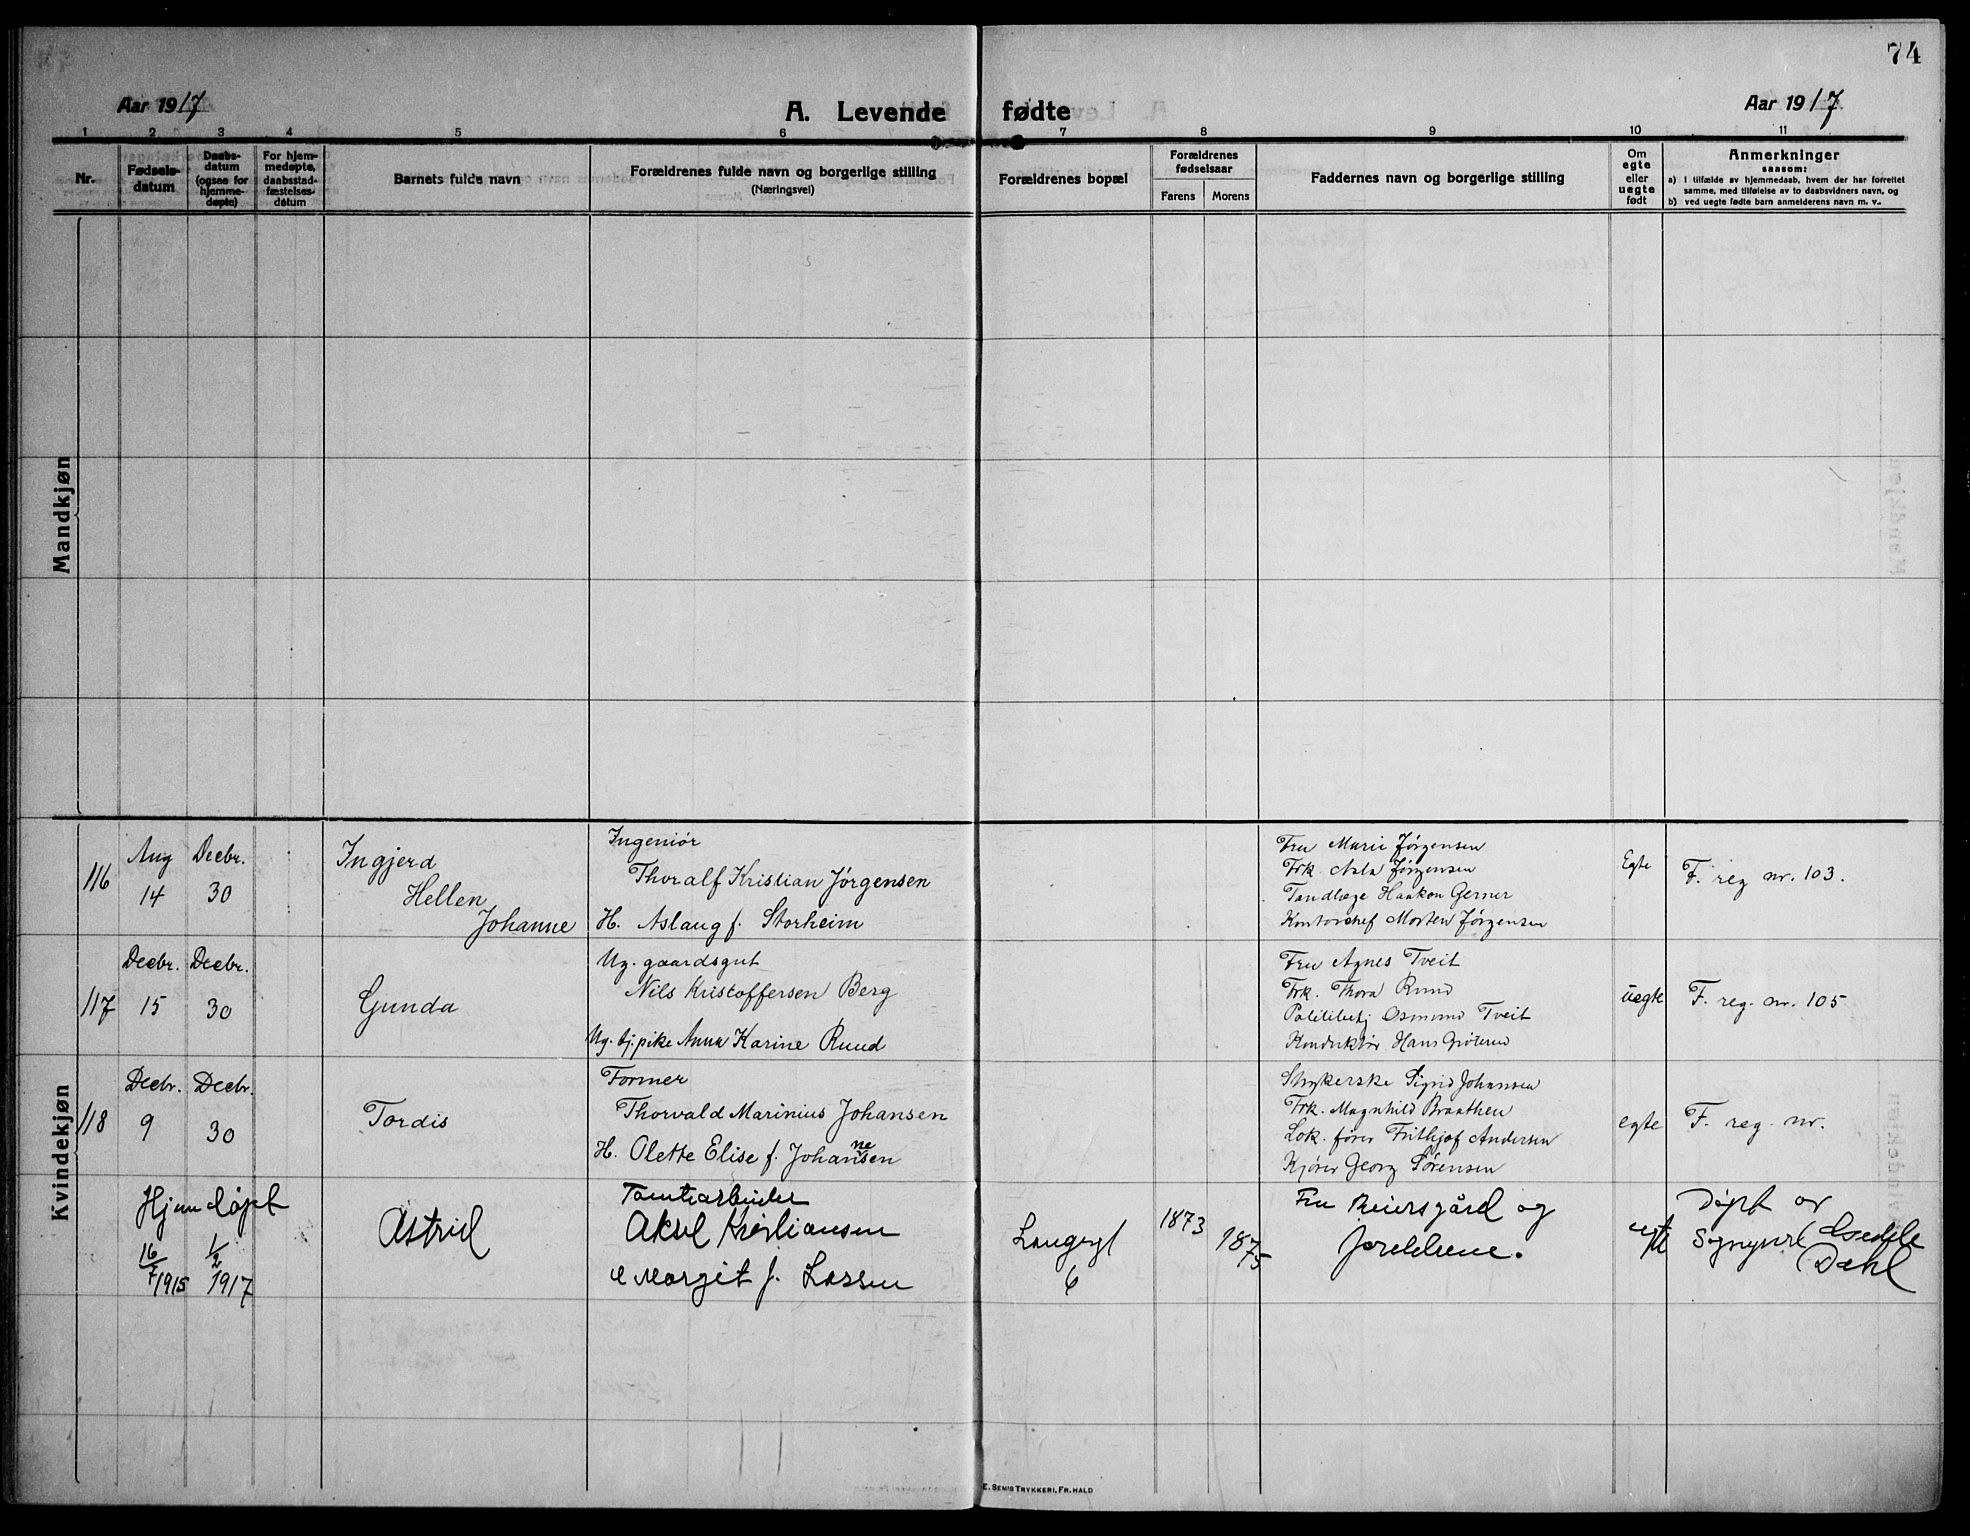 74
Aar 1917
A. Levende fødte
Aar 1917
1 2 3 4 5 6 7 8 9 10 11
Nr.
Fødsels-
datum
Daabs-
datum
(ogsaa for
hjemme-
døpte)
For hjem-
medøpte,
daabsstad-
fæstelses-
datum
Barnets fulde navn
Forældrenes fulde navn og borgerlige stilling
(Næringsvei)
Forældrenes bopæl
Forældrenes
fødselsaar
Farens Morens
Faddernes navn og borgerlige stilling
Om
egte
eller
uegte
født
Anmerkninger
saasom:
a) I tilfælde av hjemmedaab, hvem der har forrettet
samme, med tilføielse av to daabsvidners navn, og
b) ved uegte fødte barn anmelderens navn m. v..
Mandkjøn
Kvindekjøn
116
Aug
14
Decbr.
30
Ingjerd
Hellen
Johanne
Ingeniør
Thoralf Kristian Jörgensen
H. Aslaug f. Storheim
Fru Marie Jørgensen
Frk. Asla Jørgensen
Tandlæge Haakon Gerner
Kontorchef Morten Jørgensen
Egte
F. reg nr. 103.
117
Decbr.
15
Decbr.
30
Gunda
Ug. gaardsgut
Nils Kristoffersen Berg
Ug. tj. pike Anna Karine Ruud
Fru Agnes Tveit
Frk. Thora Ruud
Osmund Tveit
Konduktör Hans
uegte
F. reg. nr. 105
118
Decbr.
9
Decbr.
30
Tordis
Former
Thorvald Marinius Johansen
H. Olette Elise f. Johannesen
Strykerske Sigrid Johansen
Frk. Magnhild Braathen
Lok. fører Frithjof Andersen
Kjører Georg Sørensen
egte
F. reg. nr.
Hjemdøpt
16/7 1915
1/2 1917
Astrid
Tomtearbeider
Aksel Kristiansen
Margit f. Lassen
Langegt
6
1873
1875
Fru Beiersgård og
foreldrene.
egte
Døpt av
Sognepr.
Dahl
E. Sems Trykkeri, Fr.hald